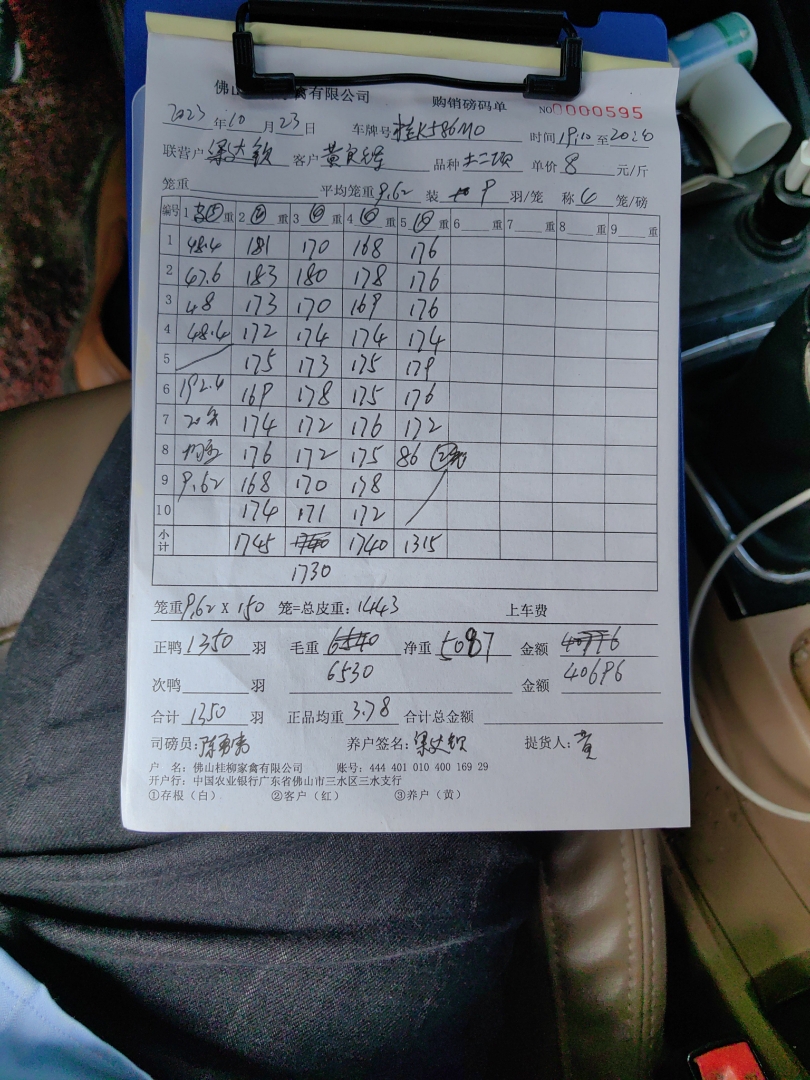 佛山 禽有限公司 购销磅码单 NO 0000595
2023年10月23日 车牌号 桂K586M0 时间19:10至20:20
联营户 梁达钦 客户 黄 品种 土二 单价 8 元/斤
笼重 平均笼重 9.62 装 9 羽/笼 称 6 笼/磅
编号 1 ⑤ 重 2 ⑥ 重 3 ⑥ 重 4 ⑥ 重 5 ⑥ 重 6 重 7 重 8 重 9 重
1 48.4 181 170 168 176
2 47.6 183 180 178 176
3 48 173 170 169 176
4 48.4 172 174 174 174
5 175 173 175 179
6 192.4 169 178 175 176
7 20只 174 172 176 172
8 均重 176 172 175 86
9 9.62 168 170 178
10 174 171 172
小计 1745 1740 1740 1315
1730
笼重 9.62 X 150 笼=总皮重: 1443 上车费
正鸭 1350 羽 毛重 6540 净重 5087 金额 40776
次鸭 羽 6530 金额 40696
合计 1350 羽 正品均重 3.78 合计总金额
司磅员: 养户签名: 梁达钦 提货人: 黄
户 名: 佛山桂柳家禽有限公司 账号: 444 401 010 400 169 29
开户行: 中国农业银行广东省佛山市三水区三水支行
①存根(白) ②客户(红) ③养户(黄)